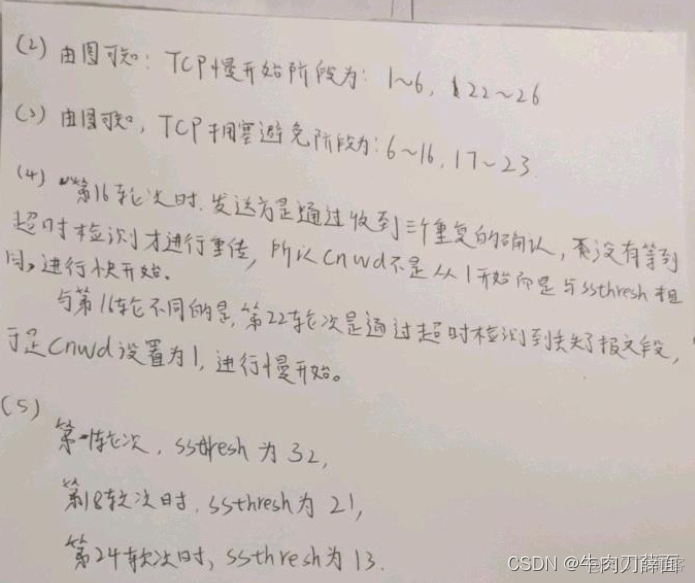 (2) 由图可知: TCP慢开始阶段为: 1~6, 22~26
(3) 由图可知, TCP拥塞避免阶段为: 6~16, 17~23
(4) 第16轮次时, 发送方是通过收到三个重复的确认, 没有等到
超时检测才进行重传, 所以Cnwd不是从1开始而是与ssthresh相
同, 进行快开始。
与第16轮不同的是, 第22轮次是通过超时检测到丢失了报文段,
于是Cnwd设置为1, 进行慢开始。
(5)
第一轮次, ssthresh为32,
第18轮次时, ssthresh为21,
第24轮次时, ssthresh为13.
CSDN @牛肉刀薛面